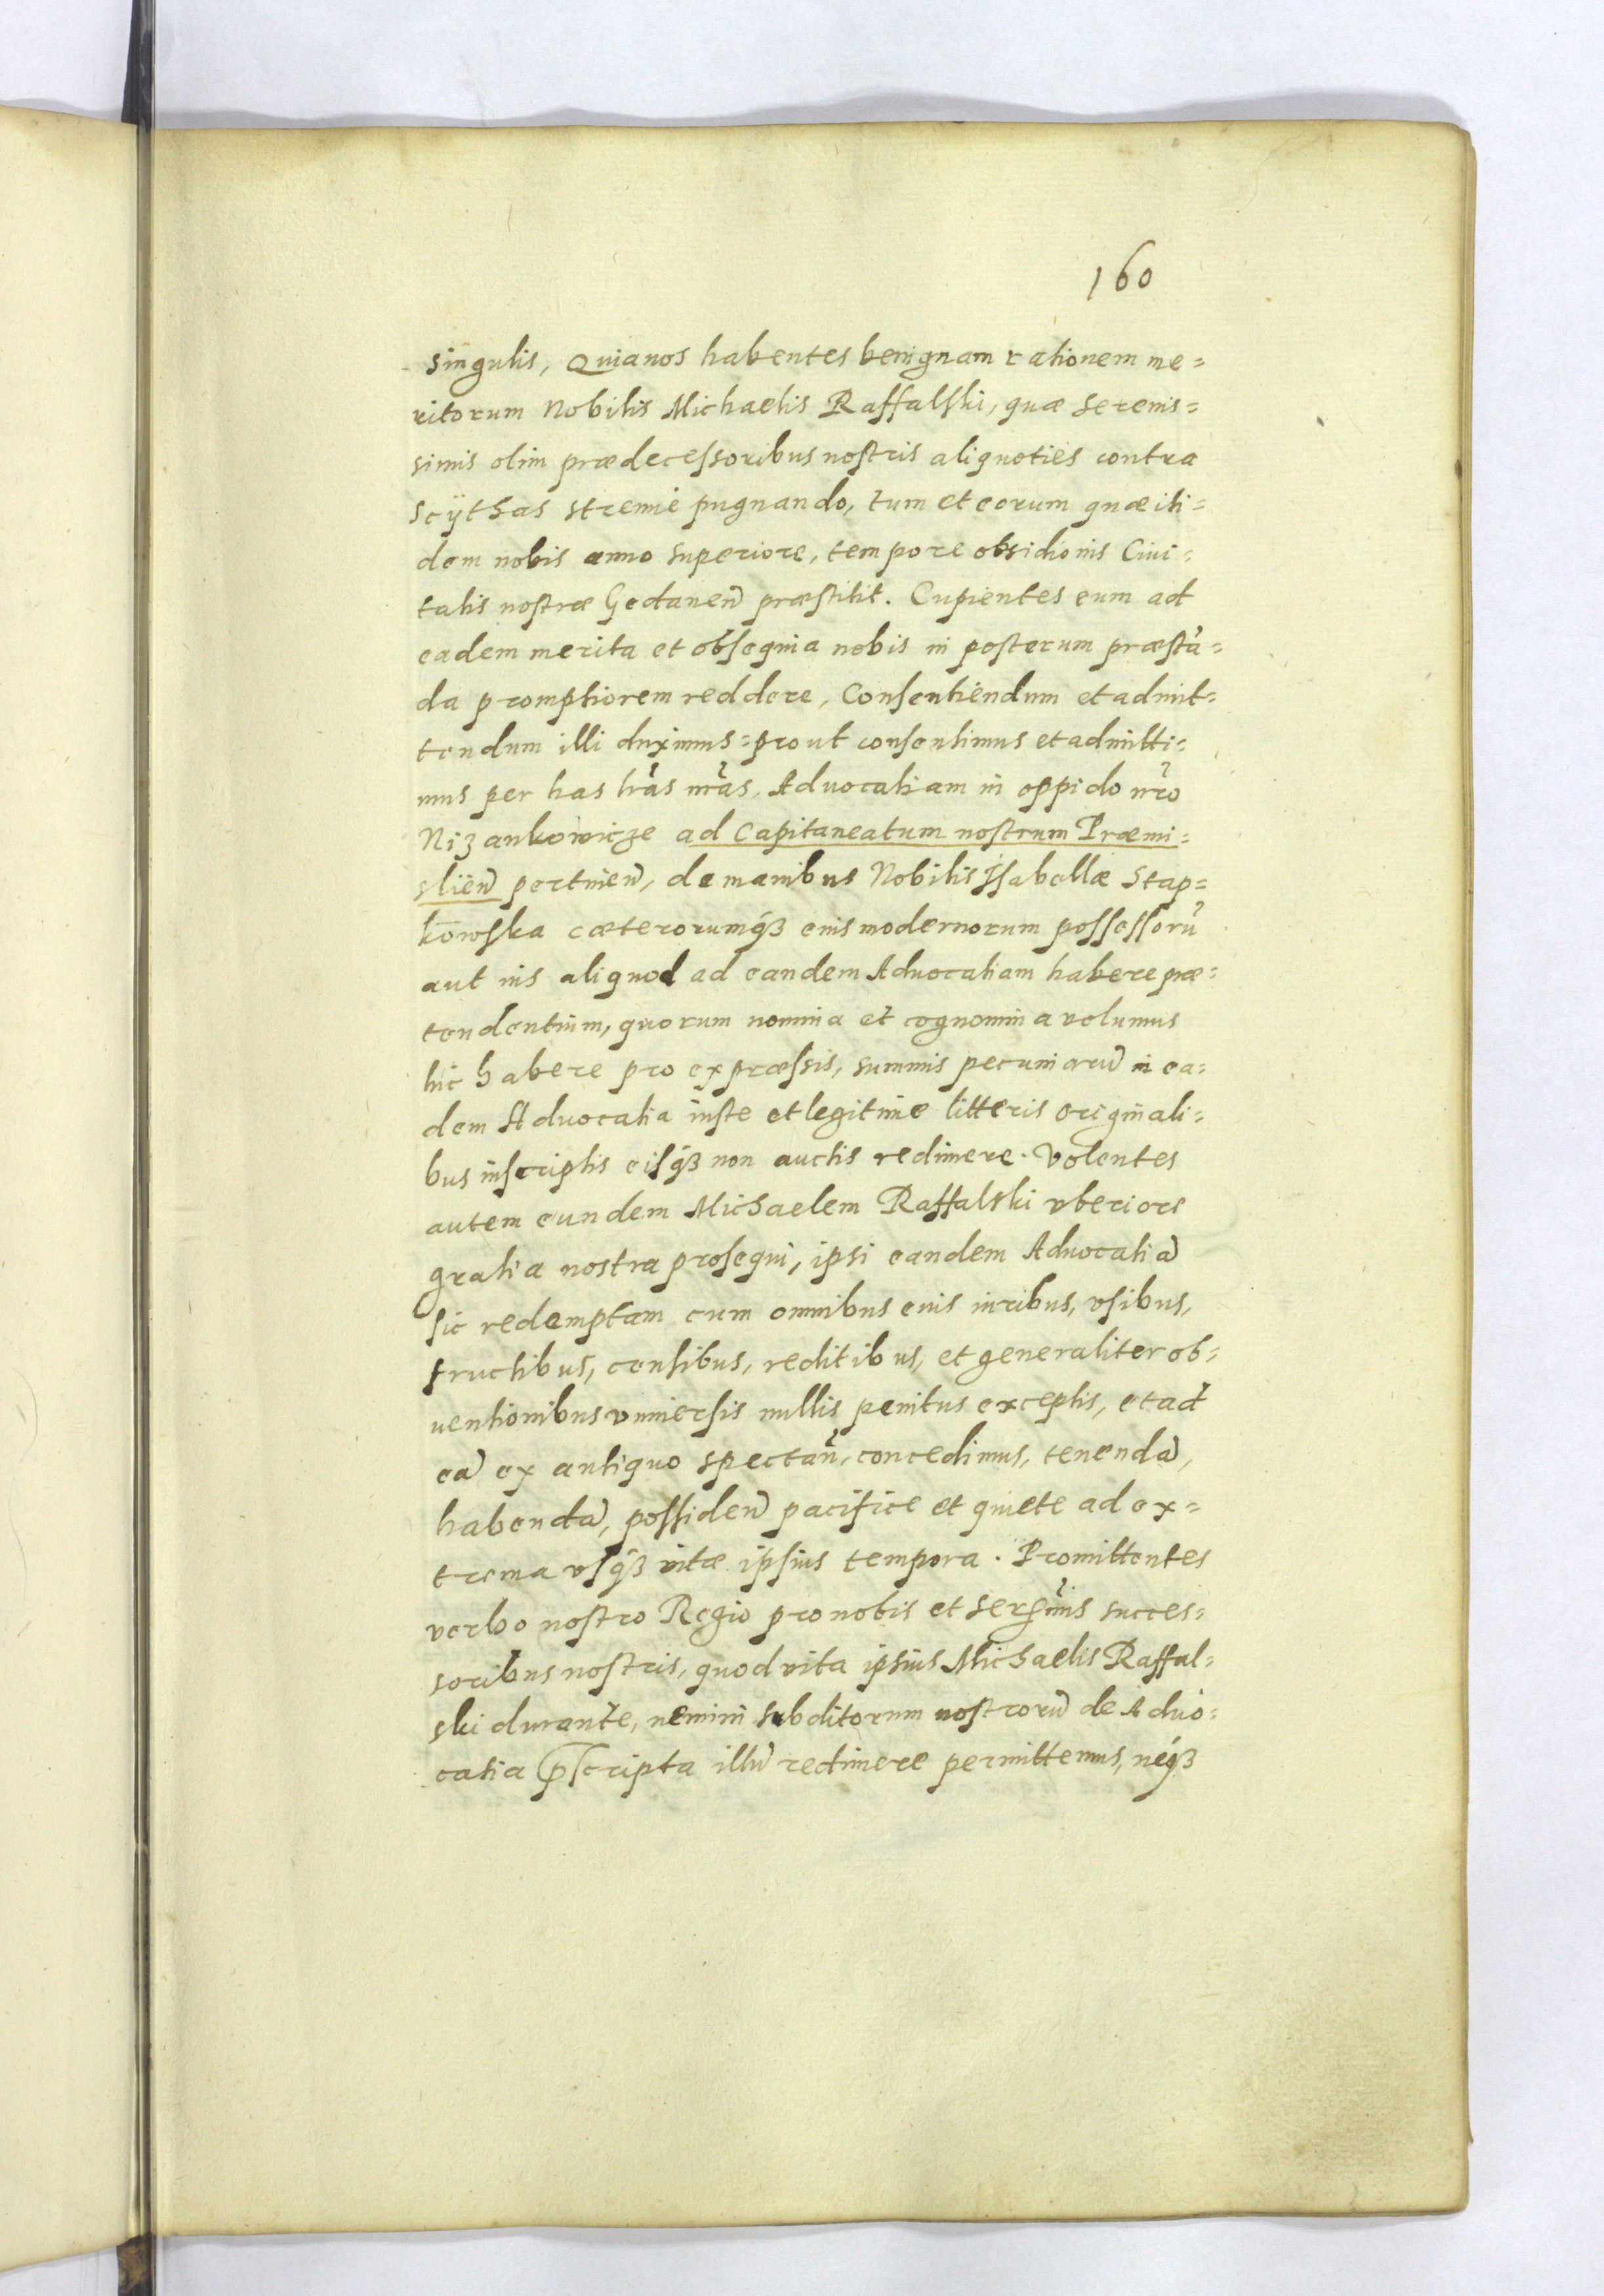 160
singulis, Quia nos habentes benignam rationem me=
ritorum Nobilis Michaelis Raffalski, quæ serenis=
simis olim prædecessoribus nostris aliquoties contra
Scÿthas strenue pugnando, tum et eorum quæ iti=
dem nobis anno superiore, tempore obsidionis Ciui=
tatis nostræ Gedaneñ præstitit. Cupientes eum ad
eadem merita et obsequia nobis in posterum præstā=
da promptiorem reddere, Consentiendum et admit=
tendum illi duximus=prout consentimus et admitti=
mus per has lr̃as nr̃as, Aduocatiam in oppido nr̃o
Nizankowicze ad Capitaneatum nostrum Præmi=
slieñ pertineñ, de manibus Nobilis Isabellæ Stap=
kowska cæterorumq́ȝ eius modernorum possessorũ
aut ius aliquod ad eandem Aduocatiam habere præ=
tendentium, quorum nomina et cognomina volumus
hic habere pro expræssis, summis pecuniarũ in ea=
dem Aduocatia iuste et legitime litteris originali=
bus inscriptis eisq́ȝ non auctis redimere. Volentes
autem eundem Michaelem Raffalski vberiore
gratia nostra prosequi, ipsi eandem Aduocatiã
sic redemptam cum omnibus euis iuribus, vsibus,
fructibus, censibus, reditibus, et generaliter ob=
uentionibus vniuersis nullis penitus exceptis, et ad
eã ex antiquo spectañ, concedimus, tenendã,
habendã, possideñ pacifice et quiete ad ex=
trema vsq́ȝ vitæ ipsius tempora. Promittentes
verbo nostro Regio pro nobis et Ser̃mis succes=
soribus nostris, quod vita ipsius Michaelis Raffal=
ski durante, nemini subditorum nostrorũ de Aduo=
catia p̄scripta illũ redimere permittemus, neq́ȝ